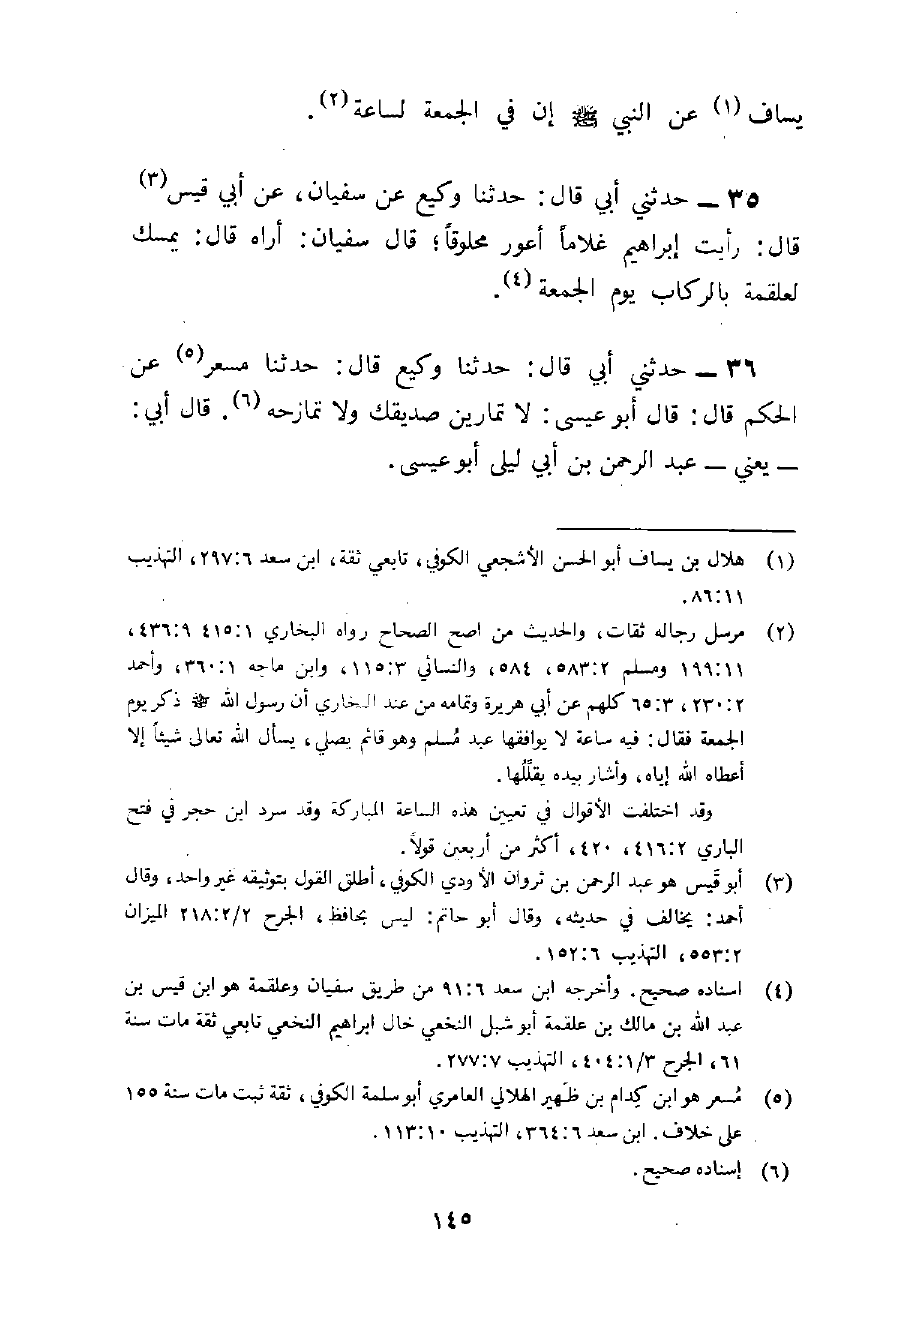 يساف(١) عن النبي ﷺ إن في الجمعة لساعة(٢).
٣٥ ــ حدثني أبي قال: حدثنا وكيع عن سفيان، عن أبي قيس(٣)
قال: رأيت إبراهيم غلاماً أعور محلوقاً؛ قال سفيان: أراه قال: يمسك
لعلقمة بالركاب يوم الجمعة(٤).
٣٦ ــ حدثني أبي قال: حدثنا وكيع قال: حدثنا مسعر(٥) عن
الحكم قال: قال أبو عيسى: لا تمارين صديقك ولا تمازحه(٦). قال أبي:
ــ يعني ــ عبد الرحمن بن أبي ليلى أبو عيسى.
(١) هلال بن يساف أبو الحسن الأشجعي الكوفي، تابعي ثقة، ابن سعد ٢٩٧:٦، التهذيب
٨٦:١١.
(٢) مرسل رجاله ثقات، والحديث من اصح الصحاح رواه البخاري ٤١٥:١ ٤٣٦:٩،
١٩٩:١١ ومسلم ٥٨٣:٢، ٥٨٤، والنسائي ١١٥:٣، وابن ماجه ٣٦٠:١، وأحمد
٢٣٠:٢، ٦٥:٣ كلهم عن أبي هريرة وتمامه من عند البخاري أن رسول الله ﷺ ذكر يوم
الجمعة فقال: فيه ساعة لا يوافقها عبد مُسلم وهو قائم يصلي، يسأل الله تعالى شيئاً إلا
أعطاه الله إياه، وأشار بيده يقلّلُها.
وقد اختلفت الأقوال في تعيين هذه الساعة المباركة وقد سرد ابن حجر في فتح
الباري ٤١٦:٢، ٤٢٠، أكثر من أربعين قولاً.
(٣) أبو قَيس هو عبد الرحمن بن ثروان الأودي الكوفي، أطلق القول بتوثيقه غير واحد، وقال
أحمد: يخالف في حديثه، وقال أبو حاتم: ليس بحافظ، الجرح ٢١٨:٢/٢ الميزان
٥٥٣:٢، التهذيب ١٥٢:٦.
(٤) اسناده صحيح. وأخرجه ابن سعد ٩١:٦ من طريق سفيان وعلقمة هو ابن قيس بن
عبد الله بن مالك بن علقمة أبو شبل النخعي خال ابراهيم النخعي تابعي ثقة مات سنة
٦١، الجرح ٤٠٤:١/٣، التهذيب ٢٧٧:٧.
(٥) مُسعر هو ابن كِدام بن ظَهير الهلالي العامري أبو سلمة الكوفي، ثقة ثبت مات سنة ١٥٥
على خلاف. ابن سعد ٣٦٤:٦، التهذيب ١١٣:١٠.
(٦) إسناده صحيح.
١٤٥